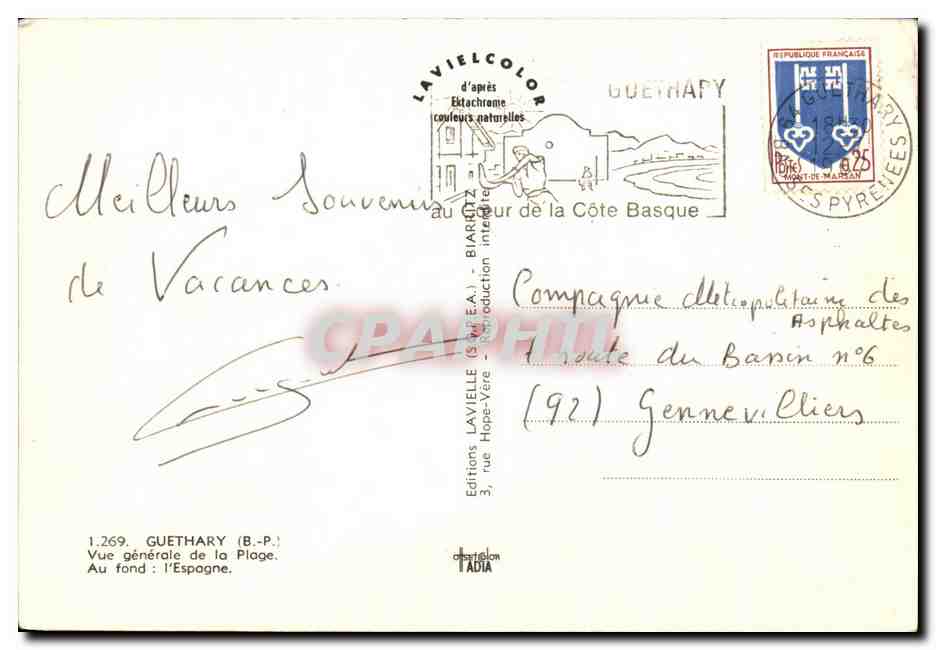 LAVIELCOLOR
d'après
Ektachrome
couleurs naturelles
GUETHARY
au Cœur de la Côte Basque
REPUBLIQUE FRANÇAISE
POSTES
0,25
MONT-DE-MARSAN
GUETHARY
18H30
BSES PYRENEES
Meilleurs Souvenirs
de Vacances.
Compagnie Métropolitaine des
Asphaltes
route du Bassin n°6
(92) Gennevilliers
CPAPHIL
Editions LAVIELLE (S.O.P.R.E.A.) - BIARRITZ
3, rue Hope-Vère - Reproduction interdite
1.269. GUETHARY (B.-P.)
Vue générale de la Plage.
Au fond : l'Espagne.
offsetcolor
TADIA